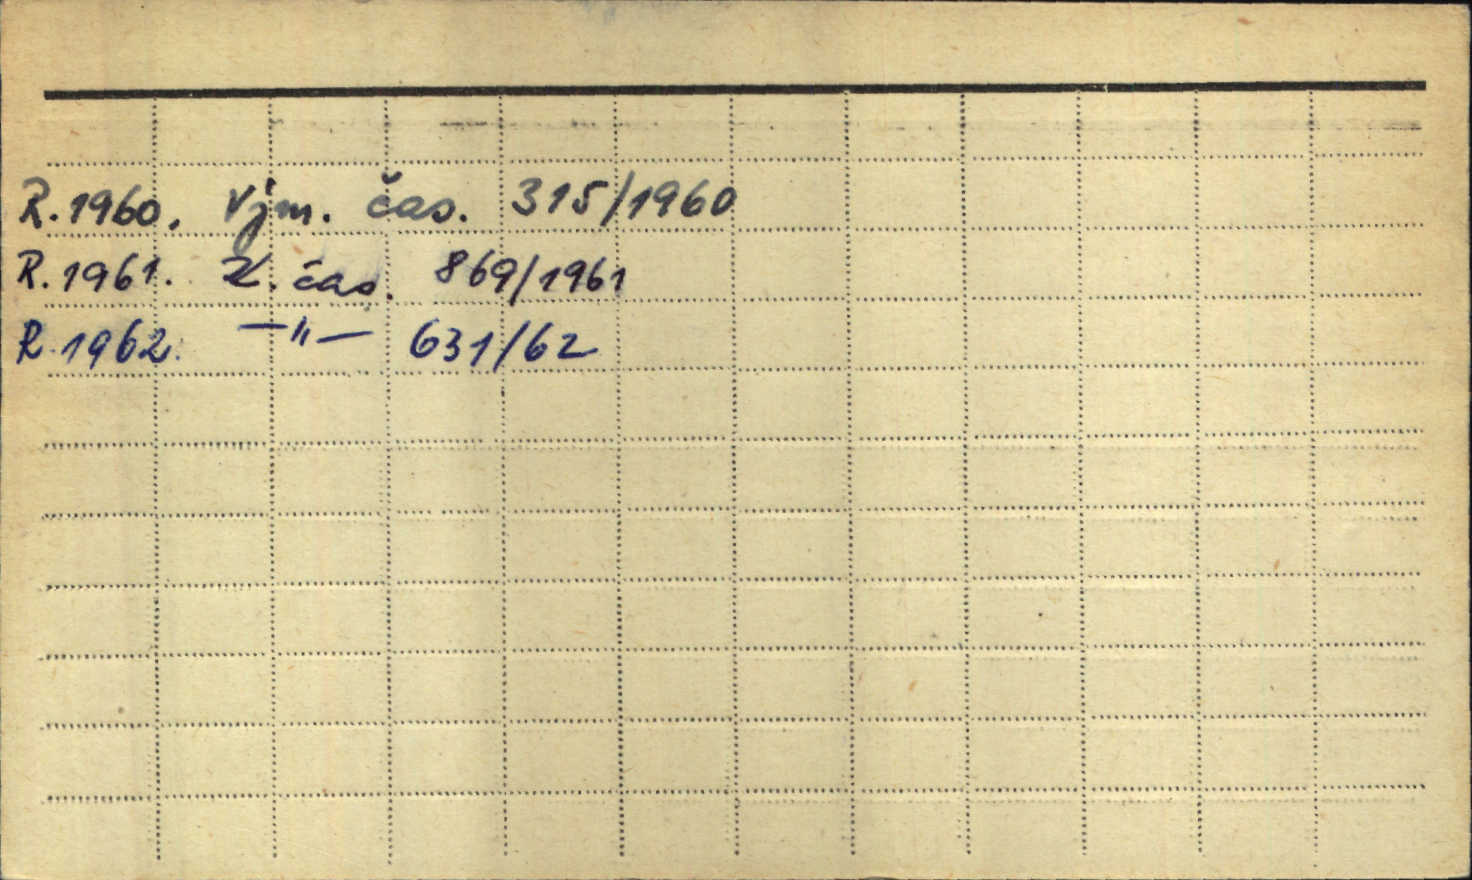 R. 1960. Vým. čas. 315/1960
R. 1961. Z. čas. 869/1961
R. 1962. —"— 631/62